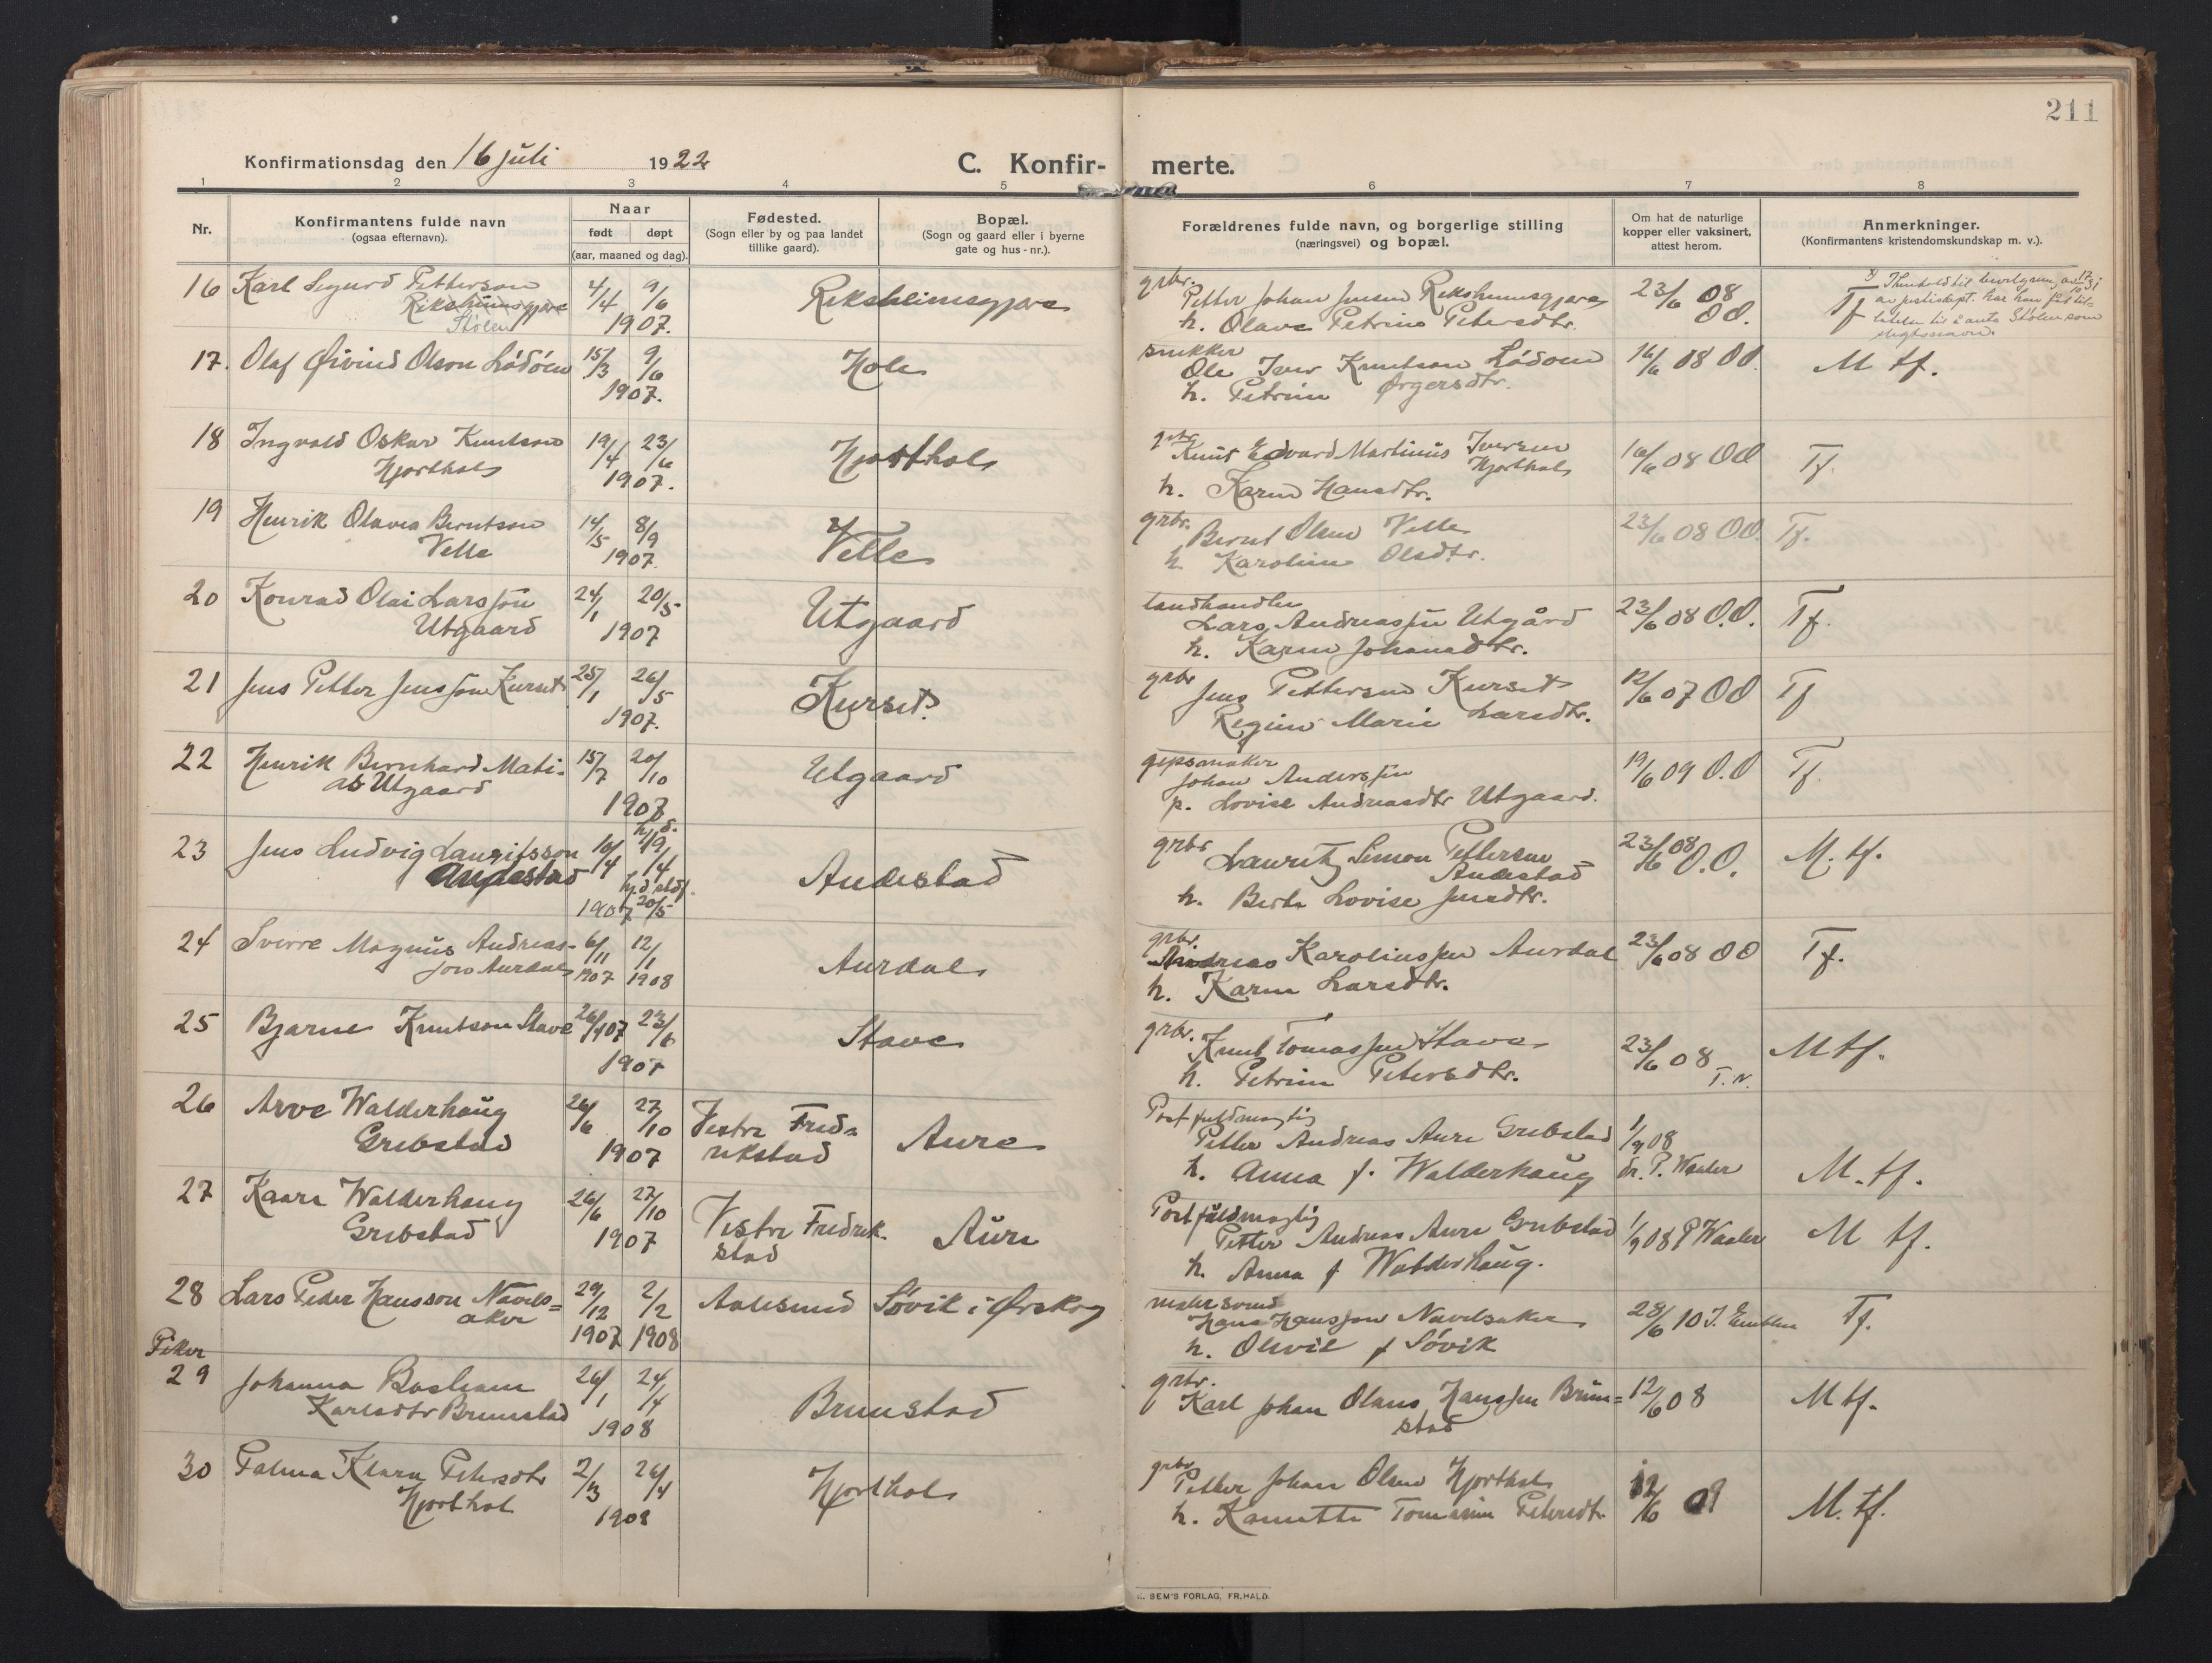 211
Konfirmationsdag den 16 juli 1922
C. Konfir- merte.
1 2 3 4 5 6 7 8
Nr.
Konfirmantens fulde navn
(ogsaa efternavn).
Naar
født døpt
(aar, maaned og dag).
Fødested.
(Sogn eller by og paa landet
tillike gaard).
Bopæl.
(Sogn og gaard eller i byerne
gate og hus-nr.).
Forældrenes fulde navn, og borgerlige stilling
(næringsvei) og bopæl.
Om hat de naturlige
kopper eller vaksinert,
attest herom.
Anmerkninger.
(Konfirmantens kristendomskundskap m. v.).
16 Karl Sigurd Petterson
Reksheimsgjære
Stølen
4/4 9/6
1907.
Reksheimsgjære
grbr.
Petter Johan Jensen Reksheimsgjære
h. Olave Petrine Petersdtr.
23/6 08
OO.
Tf
av justisdept. har han fåt til-
latelse til å anta Stølen som
slegtsnavn.
17. Olaf Øivind Olson Lødøen
15/3 9/6
1907.
Hole
snekker
Ole Iver Knutson Lødøen
h. Petrine Ørgersdtr.
16/6 08 OO.
M tf.
18 Ingvald Oskar Knutson
Hjorthol
19/4 23/6
1907.
Hjorthol
grbr
Knut Edvard Martinus Iversen
Hjorthol
h. Karen Hansdtr.
16/6 08 OO
Tf.
19 Henrik Olavea Berntson
Velle
14/5 8/9
1907.
Velle
grbr.
Bernt Olsen Velle
h. Karoline Olsdtr.
23/6 08 OO.
Tf.
20 Konrad Olai Larsson
Utgaard
24/1 20/5
1907
Utgaard
landhandler
Lars Andreassen Utgård
h. Karen Johansdtr.
23/6 08 O.O.
Tf.
21 Jens Petter Jensson Kurset
25/1 26/5
1907.
Kurset.
grbr
Jens Pettersen Kurset
Regine Marie Larsdtr.
12/6 07 OO
Tf
22 Henrik Bernhard Mati-
as Utgaard
15/7 20/10
1907
Utgaard
gipsmaker
Johan Anderssen
p. Lovise Andreasdtr Utgaard.
19/6 09 O.O
Tf.
23 Jens Ludvig Lauritsson
Andestad
16/4 hjd. 19/4
hjd. stdf.
1907 20/5
Andestad
grbr
Lauritz Simon Pettersen
Andestad
h. Berte Lovise Jensdtr.
23/6 08
O.O.
M. tf.
24 Sverre Magnus Andreas-
son Aurdal
6/11 12/1
1907 1908
Aurdal
grbr.
Andreas Karoliussen Aurdal
h. Karen Larsdtr.
23/6 08 OO
Tf.
25 Bjarne Knutson Stave
23/6
1907
Stave
grbr.
Knut Tomassen Stave
h. Petrine Petersdtr.
23/6 08
T.N.
M tf.
26 Arve Walderhaug
Grebstad
26/6 27/10
1907
Vestre Fred-
rikstad
Aure
Postfuldmægtig
Petter Andreas Aure Grebstad
h. Anna f. Walderhaug
1/9 08
dr. P. Waaler
M. tf.
27 Kaare Walderhaug
Grebstad
26/6 27/10
1907
Vestre Fredrik-
stad
Aure
Postfuldmægtig
Petter Andreas Aure Grebstad
h. Anna f Walderhaug.
1/9 08 P Waaler
M tf.
28 Lars Peder Hansson Navels-
aker
29/12 2/2
1907 1908
Aalesund
Søvik i Ørskog
malersvend
Hans Hansson Navelsaker
h. Oluvie f Søvik
28/6 10 J. Emblem
Tf.
Piker
29 Johanna Bastiane
Karlsdtr Brunstad
26/1 24/4
1908
Brunstad
grbr.
Karl Johan Olaus Hanssen Brun-
stad
12/6 08
M tf.
30 Palma Klara Petersdtr
Hjorthol
2/3 26/4
1908
Hjorthol
grbr
Petter Johan Olsen Hjorthol
h. Kanutte Tomasine Petersdtr.
12/6 09
M. tf.
E. SEM'S FORLAG, FR.HALD.